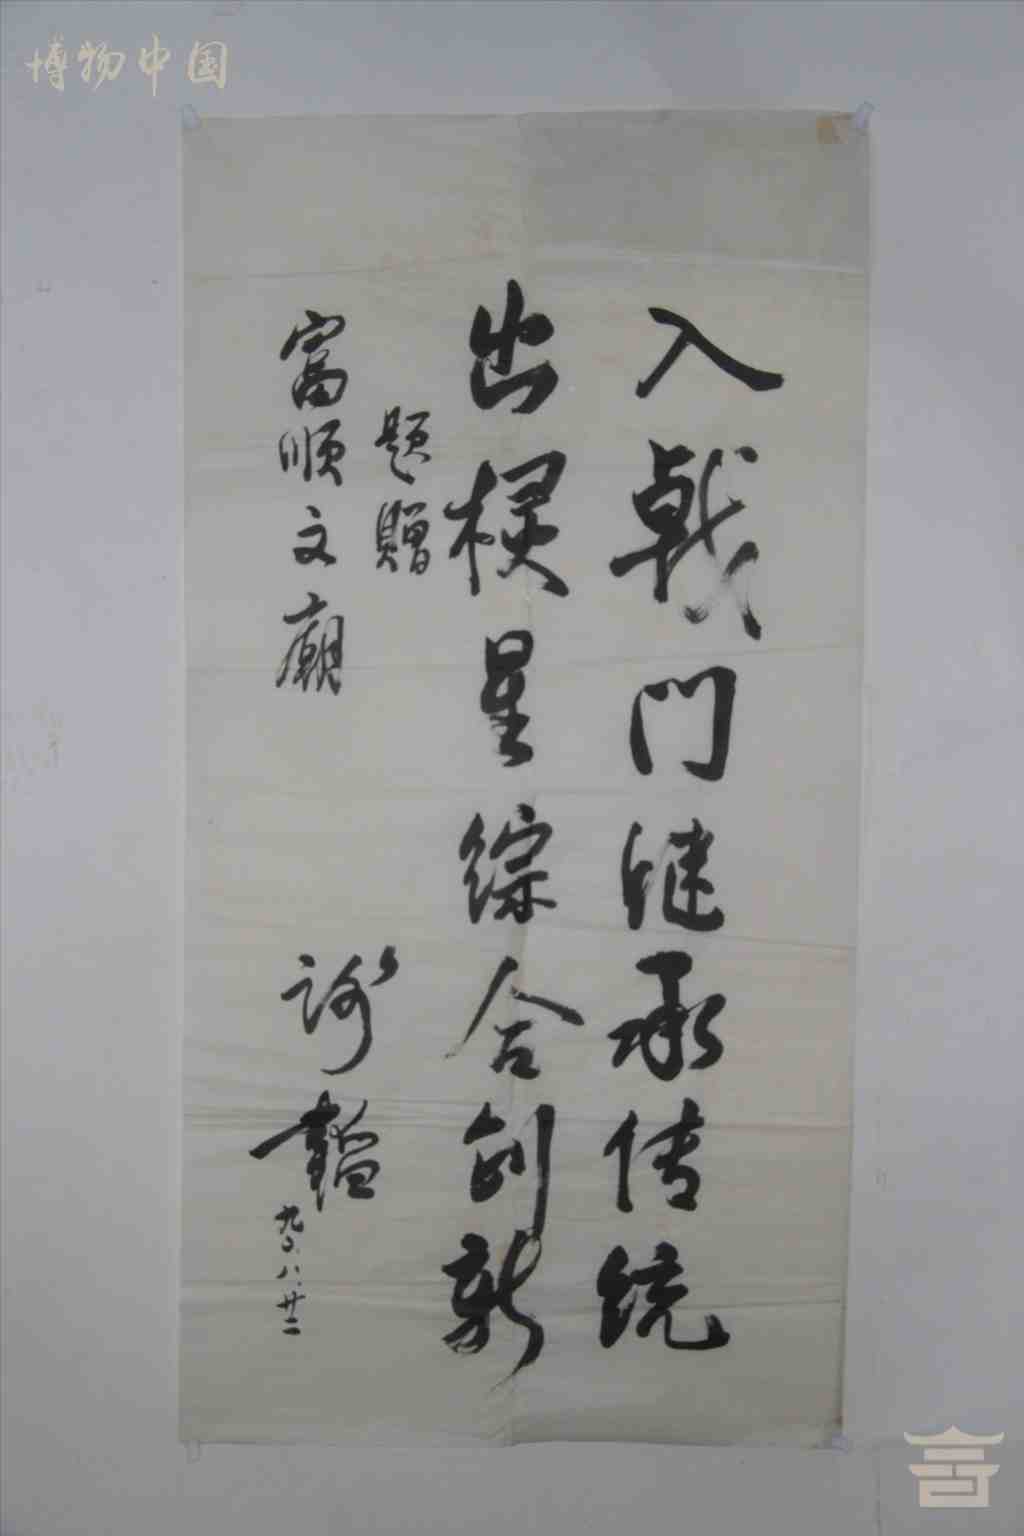 博物中国
入戟門继承传统
出棂星综合创新
题贈
富顺文廟
谢韬
九〇.八.廿二